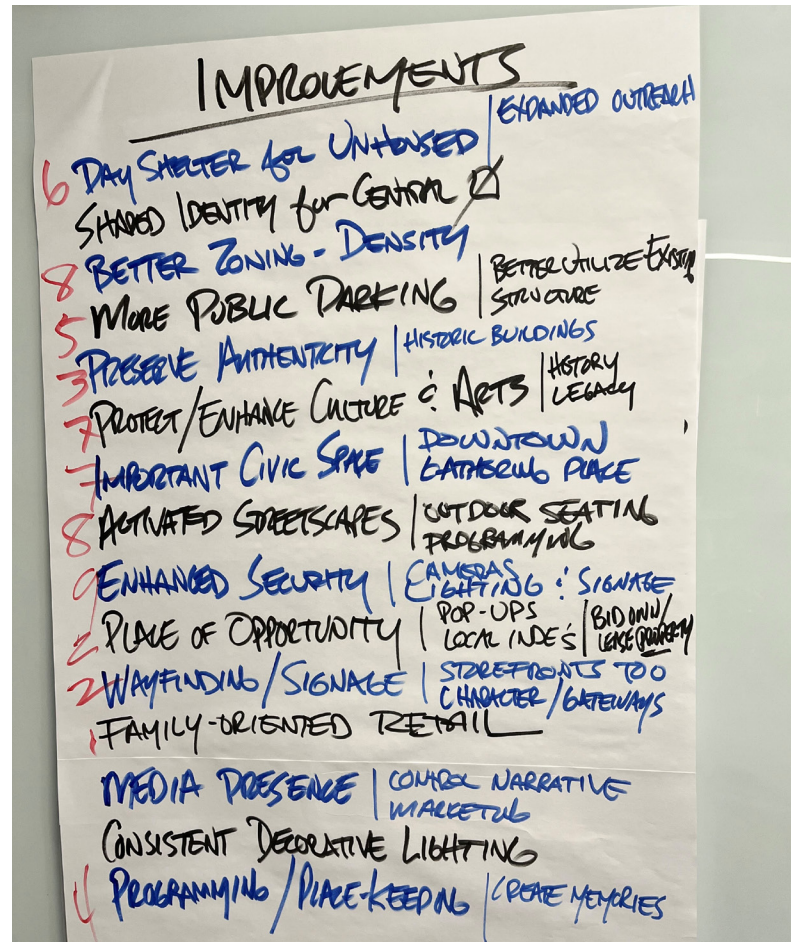 IMPROVEMENTS
6 DAY SHELTER for UNHOUSED | EXPANDED OUTREACH
SHARED IDENTITY for CENTRAL ☑
8 BETTER ZONING - DENSITY
5 MORE PUBLIC PARKING | BETTER UTILIZE EXISTING
STRUCTURE
3 PRESERVE AUTHENTICITY | HISTORIC BUILDINGS
7 PROTECT/ENHANCE CULTURE & ARTS | HISTORY
LEGACY
7 IMPORTANT CIVIC SPACE | DOWNTOWN
GATHERING PLACE
8 ACTIVATED STREETSCAPES | OUTDOOR SEATING
PROGRAMMING
9 ENHANCED SECURITY | CAMERAS
LIGHTING & SIGNAGE
2 PLACE OF OPPORTUNITY | POP-UPS
LOCAL INDE'S | BID OWN/
LEASE PROPERTY
2 WAYFINDING/SIGNAGE | STOREFRONTS TOO
CHARACTER/GATEWAYS
1 FAMILY-ORIENTED RETAIL
MEDIA PRESENCE | CONTROL NARRATIVE
MARKETING
CONSISTENT DECORATIVE LIGHTING
4 PROGRAMMING/PLACE-KEEPING | CREATE MEMORIES